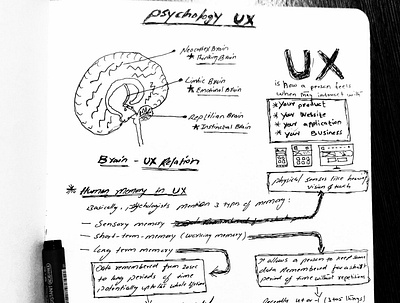 psychology UX
Neocortex Brain
* Thinking Brain
Limbic Brain
* Emotional Brain
Reptilian Brain
* Instinctal Brain
Brain - UX Relation
UX
is how a person feels
when they interact with
* Your product
* Your website
* Your application
* Your Business
physical senses like hearing
vision of touch
* Human memory in UX
Basically, psychologists mention 3 type of memory:
- Sensory memory
- short-term-memory (working memory)
- long term memory
Data remembered from
long periods of time
potentially up to whole life
It allows a person to keep some
data. Remembered for a short
period of time without repetition